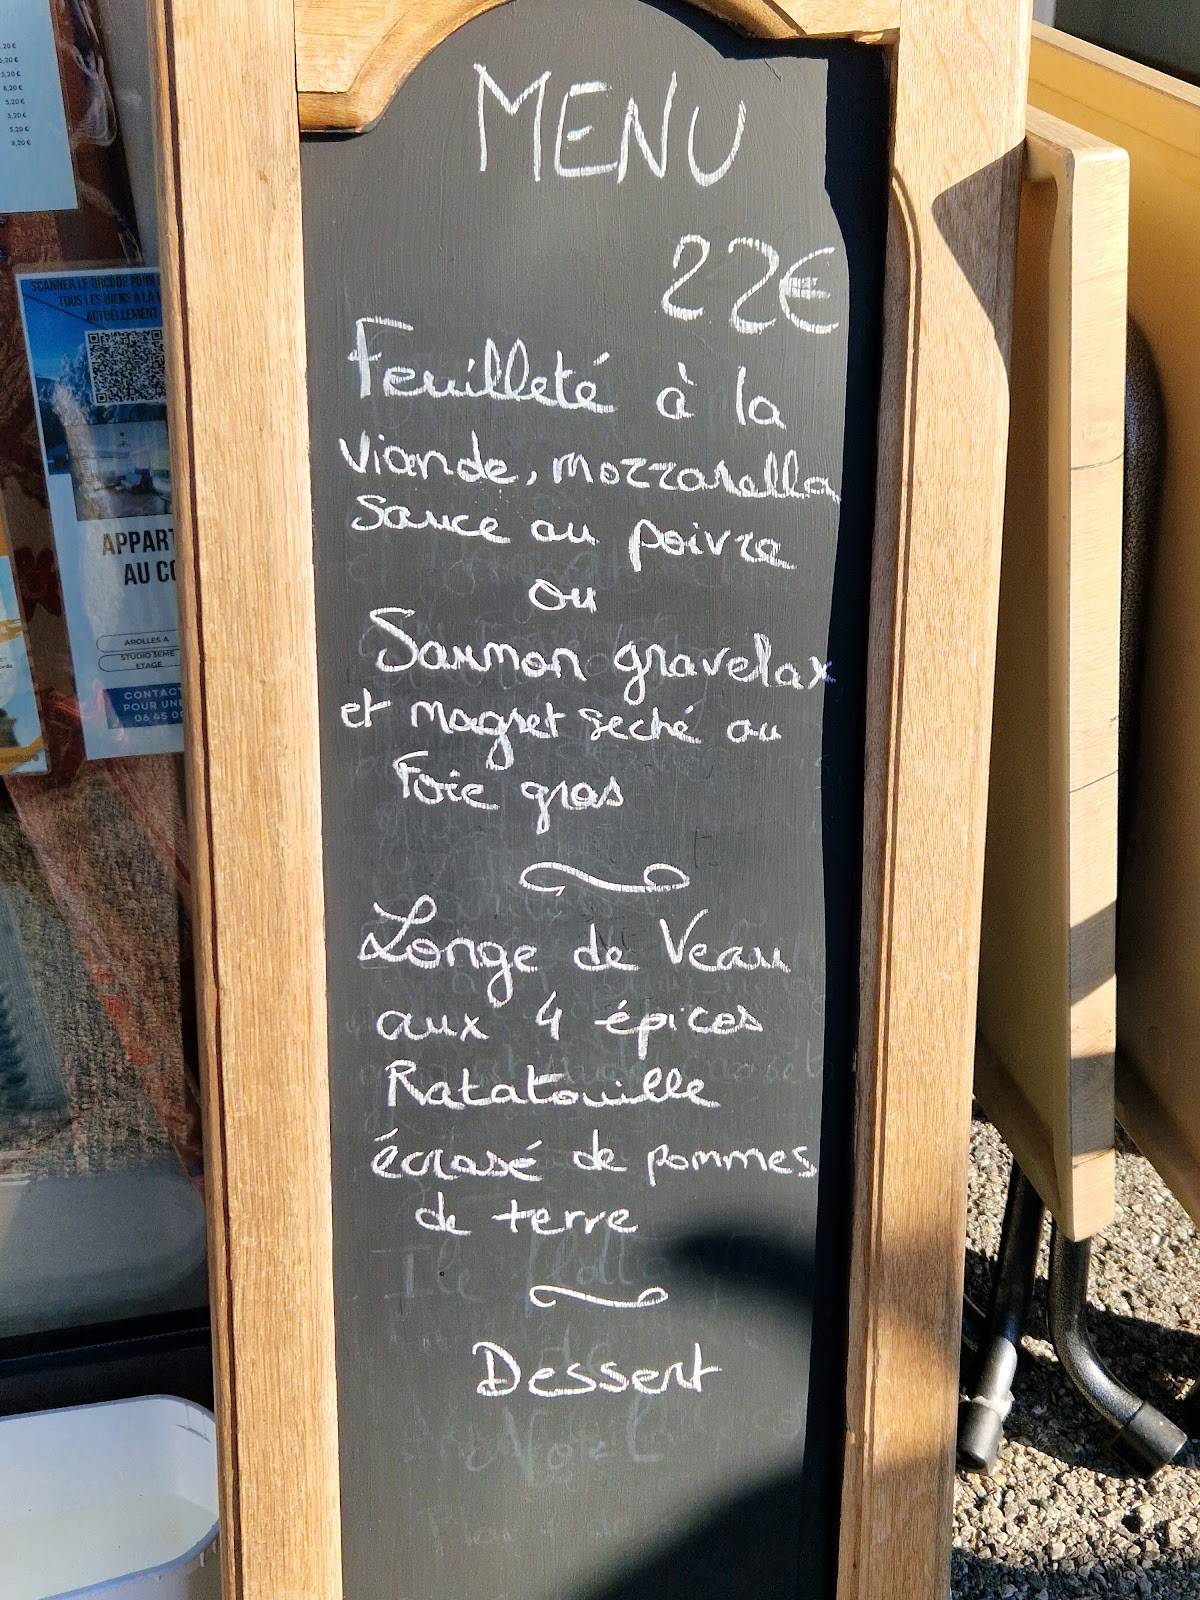 ,20 €
5,20 €
5,20 €
6,20 €
5,20 €
5,20 €
5,20 €
8,20 €
SCANNER LE QRCODE POUR
TOUS LES BIENS A LA
ACTUELLEMENT
APPART
AU CO
AROLLES A
STUDIO 3EME
ETAGE
CONTACT
POUR UNE
06 45 00
MENU
22€
Feuilleté à la
viande, mozzarella
Sauce au poivre
ou
Saumon gravelax
et magret seché au
Foie gras
Longe de Veau
aux 4 épices
Ratatouille
écrasé de pommes
de terre
Dessert
Ile flott
de
Noël